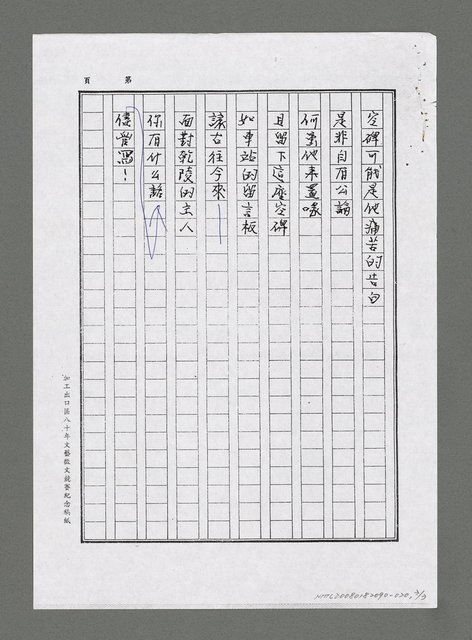 第　頁
空碑可能是他痛苦的告白
是非自有公論
何要他來置喙
且留下這座空碑
如車站的留言板
讓古往今來
面對乾陵的主人
你有什么話
儘管寫！
加工出口區八十年文藝徵文競賽紀念稿紙
NMTL20080182090-020, 3/3